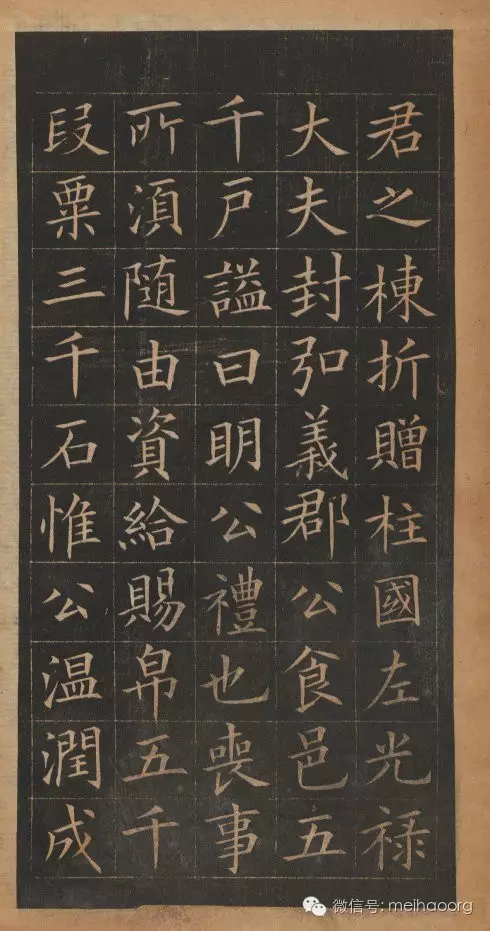 君之棟折贈柱國左光祿
大夫封弘義郡公食邑五
千戶謚曰明公禮也喪事
所須随由資給賜帛五千
段粟三千石惟公温潤成
微信号: meihaoorg